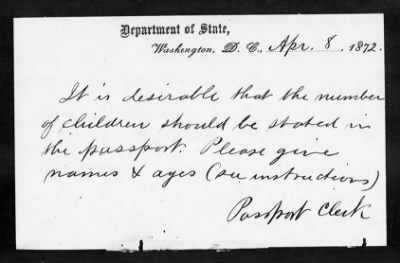 Department of State,
Washington, D. C., Apr. 8, 1872.
It is desirable that the number
of children should be stated in
the passport. Please give
names & ages (see instructions)
Passport Clerk